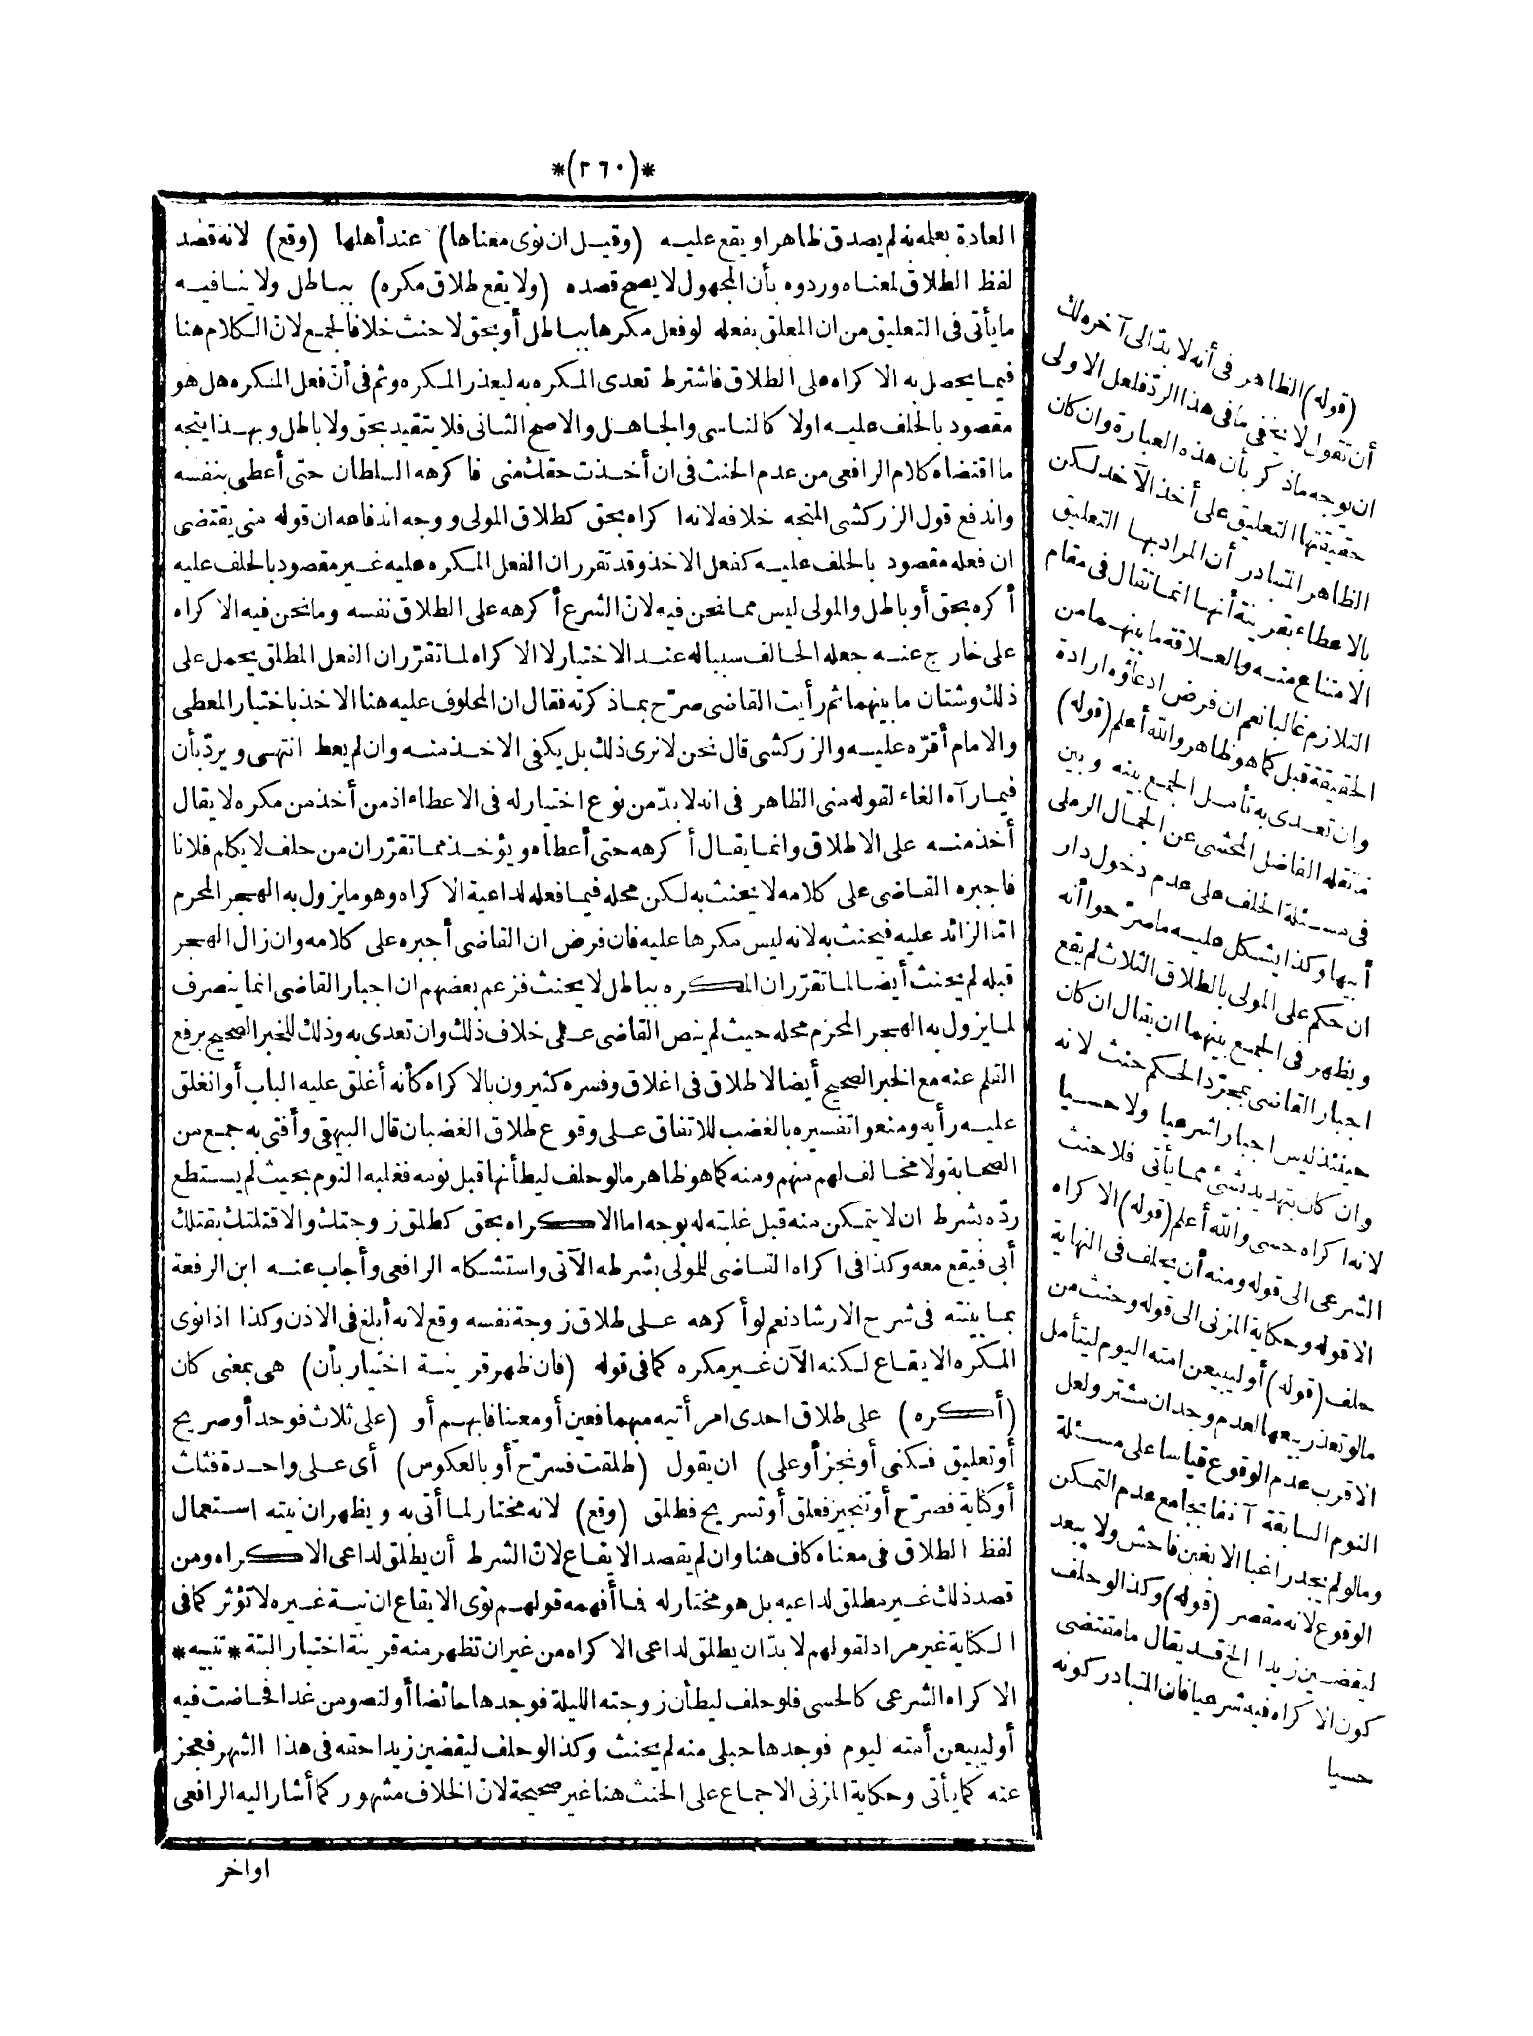 *(٢٦٠)*
العادة بعلمه به لم يصدق ظاهرا ويقع عليه (وقيل ان نوى معناها) عند أهلها (وقع) لانه قصد
لفظ الطلاق لمعناه وردوه بأن المجهول لا يصح قصده (ولا يقع طلاق مكره) بباطل ولا ينافيه
ما يأتى فى التعليق من ان المعلق بفعله لو فعل مكرها بباطل أو بحق لا حنث خلافا لجمع لان الكلام هنا
فيما يحصل به الاكراه على الطلاق فاشترط تعدى المكره به ليعذر المكره وثم فى أن فعل المكره هل هو
مقصود بالحلف عليه اولا كالناسى والجاهل والاصح الثانى فلا يتقيد بحق ولا باطل وبهذا يتجه
ما اقتضاه كلام الرافعى من عدم الحنث فى ان أخذت حقك منى فاكرهه السلطان حتى أعطى بنفسه
واندفع قول الزركشى المتجه خلافه لانه اكراه بحق كطلاق المولى ووجه اندفاعه ان قوله منى يقتضى
ان فعله مقصود بالحلف عليه كفعل الاخذ وقد تقرر ان الفعل المكره عليه غير مقصود بالحلف عليه
أكره بحق أو باطل والمولى ليس مما نحن فيه لان الشرع أكرهه على الطلاق نفسه وما نحن فيه الاكراه
على خارج عنه جعله الحالف سببا له عند الاختيار لا الاكراه لما تقرر ان الفعل المطلق يحمل على
ذلك وشتان ما بينهما ثم رأيت القاضى صرّح بما ذكرته فقال ان المحلوف عليه هنا الاخذ باختيار المعطى
والامام أقرّه عليه والزركشى قال نحن لا نرى ذلك بل يكفى الاخذ منه وان لم يعط انتهى ويردّ بأن
فيما رآه الغاء لقوله منى الظاهر فى انه لا بدّ من نوع اختيار له فى الاعطاء اذ من أخذ من مكره لا يقال
أخذ منه على الاطلاق وانما يقال أكرهه حتى أعطاه ويؤخذ مما تقرّر ان من حلف لا يكلم فلانا
فاجبره القاضى على كلامه لا يحنث به لكن محله فيما فعله لداعية الاكراه وهو ما يزول به الهجر المحرم
امّا الزائد عليه فيحنث به لانه ليس مكرها عليه فان فرض ان القاضى أجبره على كلامه وان زال الهجر
قبله لم يحنث أيضا لما تقرّر ان المكره بباطل لا يحنث فزعم بعضهم ان اجبار القاضى انما ينصرف
لما يزول به الهجر المحرّم محله حيث لم ينص القاضى على خلاف ذلك وان تعدى به وذلك للخبر الصحيح برفع
القلم عنه مع الخبر الصحيح أيضا لا طلاق فى اغلاق وفسره كثيرون بالاكراه كأنه أغلق عليه الباب أو انغلق
عليه رأيه ومنعوا تفسيره بالغضب للاتفاق على وقوع طلاق الغضبان قال البيهقى وأفتى به جمع من
الصحابة ولا مخالف لهم منهم ومنه كما هو ظاهر ما لو حلف ليطأنها قبل نومه فغلبه النوم بحيث لم يستطع
ردّه بشرط ان لا يتمكن منه قبل غلبته له بوجه اما الاكراه بحق كطلق زوجتك والا قتلتك بقتلك
أبى فيقع معه وكذا فى اكراه القاضى للمولى بشرطه الآتى واستشكله الرافعى وأجاب عنه ابن الرفعة
بما بينته فى شرح الارشاد نعم لو أكرهه على طلاق زوجة نفسه وقع لانه أبلغ فى الاذن وكذا اذا نوى
المكره الايقاع لكنه الآن غير مكره كما فى قوله (فان ظهر قرينة اختيار بأن) هى بمعنى كان
(أكره) على طلاق احدى امرأتيه مبهما فعين أو معينا فابهم أو (على ثلاث فوحد أو صريح
أو تعليق فكنى أو نجز أو على) ان يقول (طلقت فسرّح أو بالعكوس) أى على واحدة فثلث
أو كناية فصرّح أو تنجيز فعلق أو تسريح فطلق (وقع) لانه مختار لما أتى به ويظهر ان نيته استعمال
لفظ الطلاق فى معناه كاف هنا وان لم يقصد الايقاع لان الشرط أن يطلق لداعى الاكراه ومن
قصد ذلك غير مطلق لداعيه بل هو مختار له فما أفهمه قولهم نوى الايقاع ان نية غيره لا تؤثر كما فى
الكناية غير مراد لقولهم لا بدّ ان يطلق لداعى الاكراه من غير ان تظهر منه قرينة اختيار البتة *تنبيه*
الاكراه الشرعى كالحسى فلو حلف ليطأن زوجته الليلة فوجدها حائضا أو لتصومن غدا فحاضت فيه
أو ليبيعن أمته ليوم فوجدها حبلى منه لم يحنث وكذا لو حلف ليقضين زيدا حقه فى هذا الشهر فعجز
عنه كما يأتى وحكاية المزنى الاجماع على الحنث هنا غير صحيحة لان الخلاف مشهور كما أشار اليه الرافعى
اواخر
(قوله) الظاهر فى أنه لا بدّ الى آخره لك
أن تقول لا يخفى ما فى هذا الردّ فلعل الاولى
ان يوجه ما ذكر بأن هذه العبارة وان كان
حقيقتها التعليق على أخذ الآخذ لكن
الظاهر المتبادر أن المراد بها التعليق
بالاعطاء بقرينة أنها انما تقال فى مقام
الامتناع منه والعلاقة ما بينهما من
التلازم غالبا نعم ان فرض ادعاؤه ارادة
الحقيقة قبل كما هو ظاهر والله أعلم (قوله)
وان تعدى به تأمل الجمع بينه وبين
ما نقله الفاضل المحشى عن الجمال الرملى
فى مسئلة الحلف على عدم دخول دار
أبيها وكذا يشكل عليه ما صرّحوا أنه
ان حكم على المولى بالطلاق الثلاث لم يقع
ويظهر فى الجمع بينهما ان يقال ان كان
اجبار القاضى بمجرّد الحكم حنث لانه
حينئذ ليس اجبارا شرعيا ولا حسيا
وان كان بتهديد بشئ مما يأتى فلا حنث
لانه اكراه حسى والله أعلم (قوله) الاكراه
الشرعى الى قوله ومنه أن يحلف فى النهاية
الا قوله وحكاية المزنى الى قوله وحنث من
حلف (قوله) أو ليبيعن امته اليوم ليتأمل
ما لو تعذر بيعها لعدم وجدان مشتر ولعل
الاقرب عدم الوقوع قياسا على مسئلة
النوم السابقة آنفا بجامع عدم التمكن
وما لو لم يجد راغبا الا بغبن فاحش ولا يبعد
الوقوع لانه مقصر (قوله) وكذا لو حلف
ليقضين زيدا الخ قد يقال ما مقتضى
كون الاكراه فيه شرعيا فان المتبادر كونه
حسيا